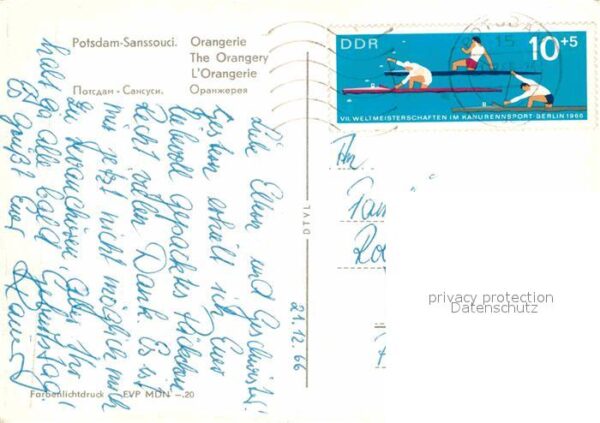 Potsdam-Sanssouci. Orangerie
The Orangery
L'Orangerie
Потсдам - Сансуси. Оранжерея
DDR 10+5
VII. WELTMEISTERSCHAFTEN IM KANURENNSPORT · BERLIN 1966
Liebe Eltern und Geschwister!
Gestern erhielt ich Euer
liebevoll gepacktes Päckchen
Recht vielen Dank. Es ist
mir jetzt nicht möglich mich
zu Ihr
habt ja alle bald Geburtstag!
Es grüßt Euer
21.12.66
An
DTVL
privacy protection
Datenschutz
Farbenlichtdruck EVP MDN -.20